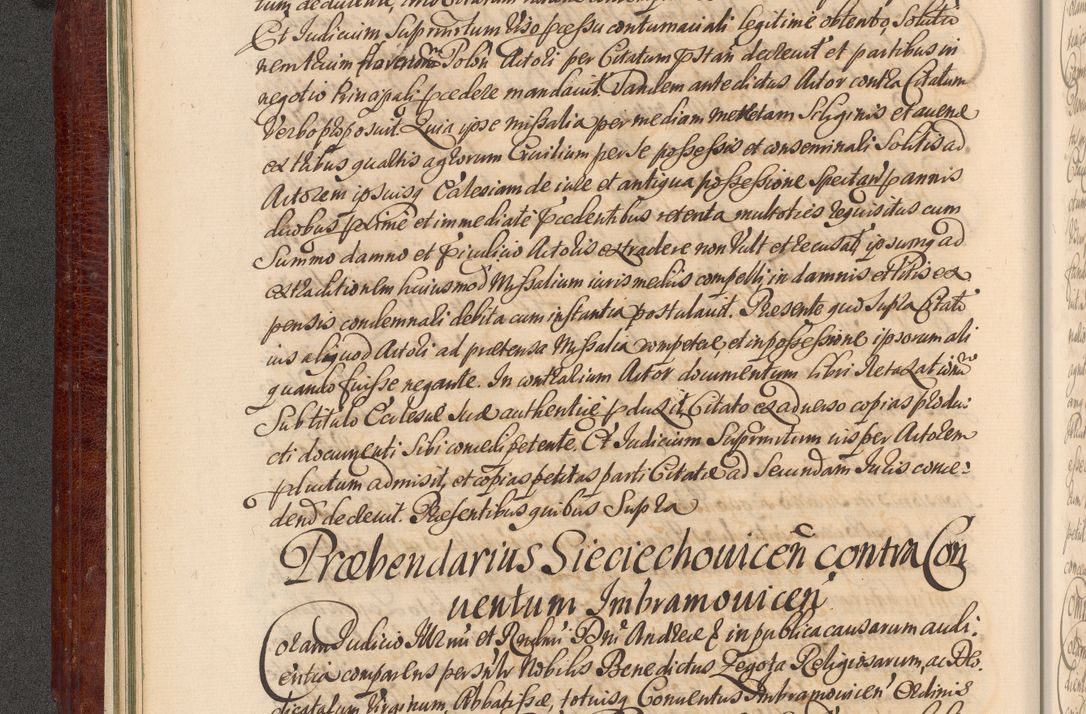 Et Iudicium Supranotatum viso processu contumaciali legitime obtento, Soluti
nem trium florenorum Polon Actori per Citatum praestan decrevit et partibus in
negotio Principali procedere mandavit. Tandem antedictus Actor contra Citatum
Verbo proposuit. Quia ipse missalia per mediam metretam Siliginis et avenae
ex tribus quartis agrorum Civilium per se possessis et conseminari Solitis ad
Actorem ipsiusq Ecclesiam de iure et antiqua possessione Spectan pro annis
duobus proxime et immediate praecedentibus retenta multoties requisitus cum
Summo damno et praeiudicio Actoris extradere non vult et recusat, ipsumq ad
extraditionem huiusmod Missalium iuris mediis compelli, in damnis et litis ex
pensis condemnari debita cum instantia postulavit. Praesente quo Supra Citato
ius aliquod Actori ad praetensa Missalia competere, et in possessione ipsorum ali
quando fuisse negante. In contrarium Actor documentum libri Retaxationum
Sub titulo Ecclesiae Suae authentice produxit, Citato ex adverso copias produ:
cti documenti Sibi concedi petente. Et Iudicium Supranotatum ius per Actorem
productum admisit, et copias petitas parti Citatae ad Secundam Iuris conce:
dend decrevit. Praesentibus quibus Supra
Præbendarius Sieciechovicen̄ contra Con
ventum Imbramovicen̄
Coram Iudicio Illmi et Rendmi Dni Andreae & in publica causarum audi:
entia comparens personlr Nobilis Benedictus Zegota Religiosarum, ac Deo
dicatarum Virginum, Abbatissae, totiusq Conventus Imbramovicen Ordinis